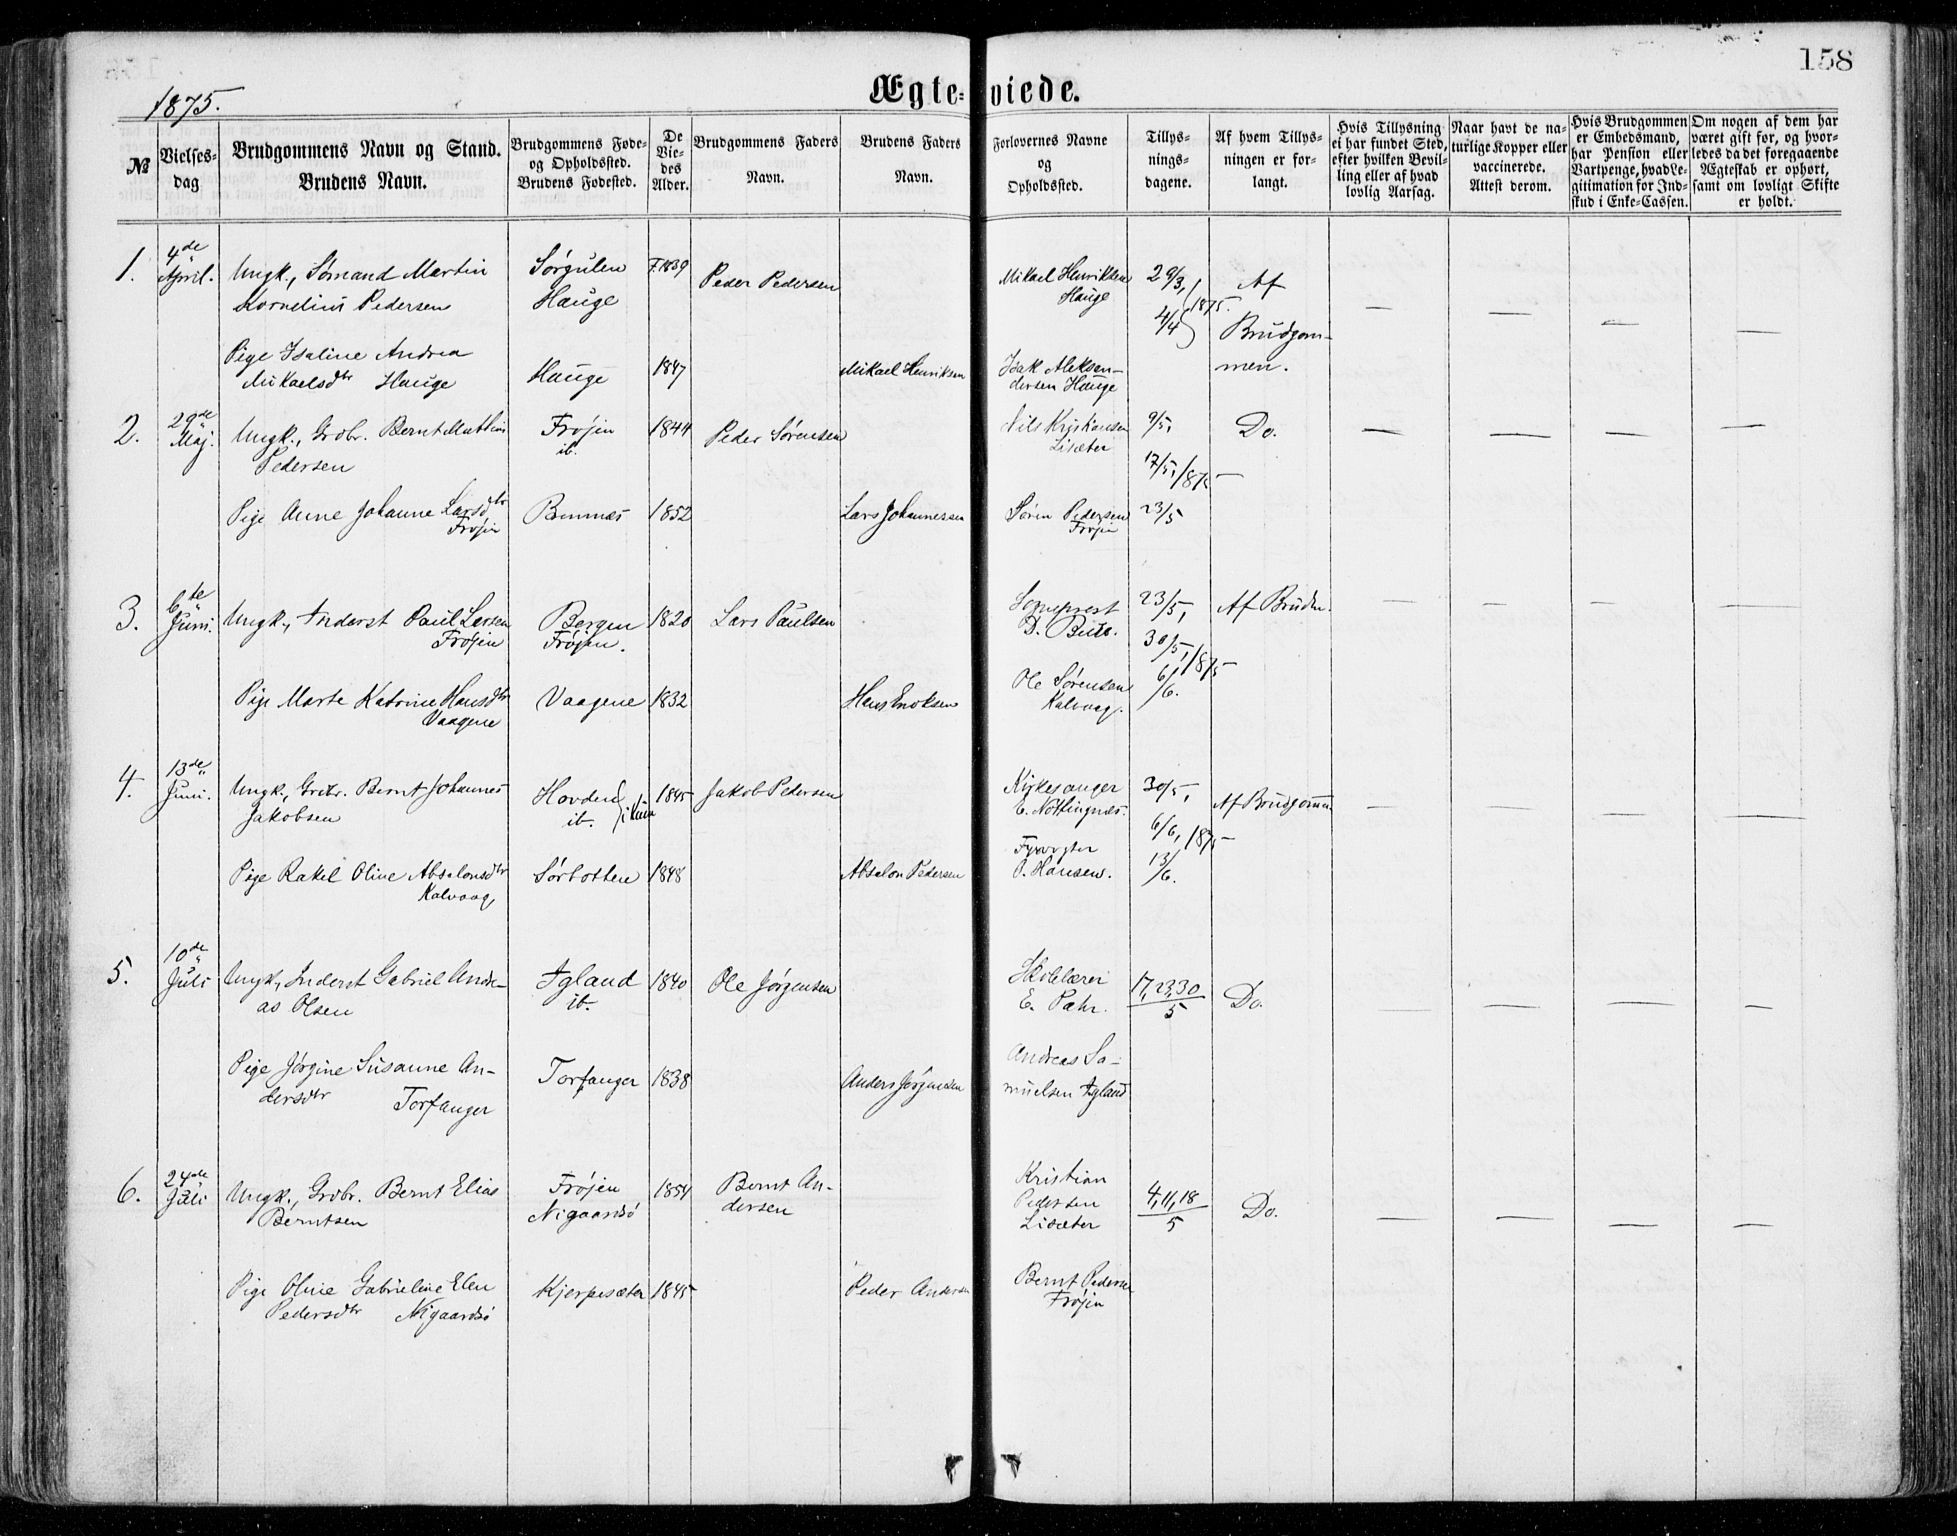 158
1875.
Ægteviede.
№
Vielses-
dag
Brudgommens Navn og Stand.
Brudens Navn.
Brudgommens Føde-
og Opholdssted.
Brudens Fødested.
De
Vie-
des
Alder.
Brudgommens Faders
Navn.
Brudens Faders
Navn.
Forlovernes Navne
og
Opholdssted.
Tillys-
nings-
dagene.
Af hvem Tillys-
ningen er for-
langt.
Hvis Tillysning
ei har fundet Sted,
efter hvilken Bevil-
ling eller af hvad
lovlig Aarsag.
Naar havt de na-
turlige Kopper eller
vaccinerede.
Attest derom.
Hvis Brudgommen
er Embedsmand,
har Pension eller
Vartpenge, hvad Le-
gitimation for Ind-
skud i Enke-Cassen.
Om nogen af dem har
været gift før, og hvor-
ledes da det foregaaende
Ægteskab er ophørt,
samt om lovligt Skifte
er holdt.
1.
4de
April.
Ungk., Sømand Martin
Kornelius Pedersen
Sørgulen
Hauge
F. 1839
Peder Pedersen
Mikael Henriksen
Hauge
29/3,
4/4
1875.
Af
Brudgom-
men.
— — — —
Pige Isaline Andrea
Mikaelsdtr Hauge
Hauge
1847
Mikael Henriksen
Isak Aleksan-
dersen Hauge
2.
29de
Maj.
Ungk., Grdbr. Bernt Mathias
Pedersen
Frøjen
ib.
1844
Peder Sørensen
Nils Kristiansen
Lisæter
9/5,
17/5, 1875
23/5
Do.
— — — —
Pige Anne Johanne Larsdtr
Frøjen
Bremnes
1852
Lars Johannessen
Søren Pedersen
Frøjen
3.
6te
Juni.
Ungk., Inderst Paul Larsen
Frøjen
Bergen
Frøjen.
1820
Lars Paulsen
Sogneprest
D.
23/5,
30/5, 1875
6/6.
Af Bruden.
— — — —
Pige Marte Katrine Hansdtr
Vaagene
Vaagene
1832
Hans Enoksen
Ole Sørensen
Kalvaag.
4.
13de
Juni.
Ungk., Grdbr. Bernt Johannes
Jakobsen
Hovden
ib. i Kinn
1845
Jakob Pedersen
Kirkesanger
E. Nøttingnæs.
30/5,
6/6, 1875
13/6.
Af Brudgommen
— — — —
Pige Rakel Oline Absalonsdtr
Kalvaag
Sørbotten
1848
Absalon Pedersen
Fyrvogter
O. Hansen.
5.
10de
Juli
Ungk, Inderst Gabriel Andre-
as Olsen
Igland
ib.
1840
Ole Jørgensen
Skolelærer
E. Pæhr.
17, 23, 30
5
Do.
— — — —
Pige Jørgine Susanne An-
dersdtr Torfanger
Torfanger
1838
Anders Jørgensen
Andreas Sa-
muelsen Igland
6.
24de
Juli
Ungk., Grdbr. Bernt Elias
Berntsen
Frøjen
Nigaardsø
1854
Bernt An-
dersen
Kristian
Pedersen
Lisæter
4, 11, 18
5
Do.
— — — —
Pige Oline Gabrieline Elen
Pedersdtr Nigaardsø
Kjerpesæter
1845
Peder Andersen
Bernt Pedersen
Frøjen